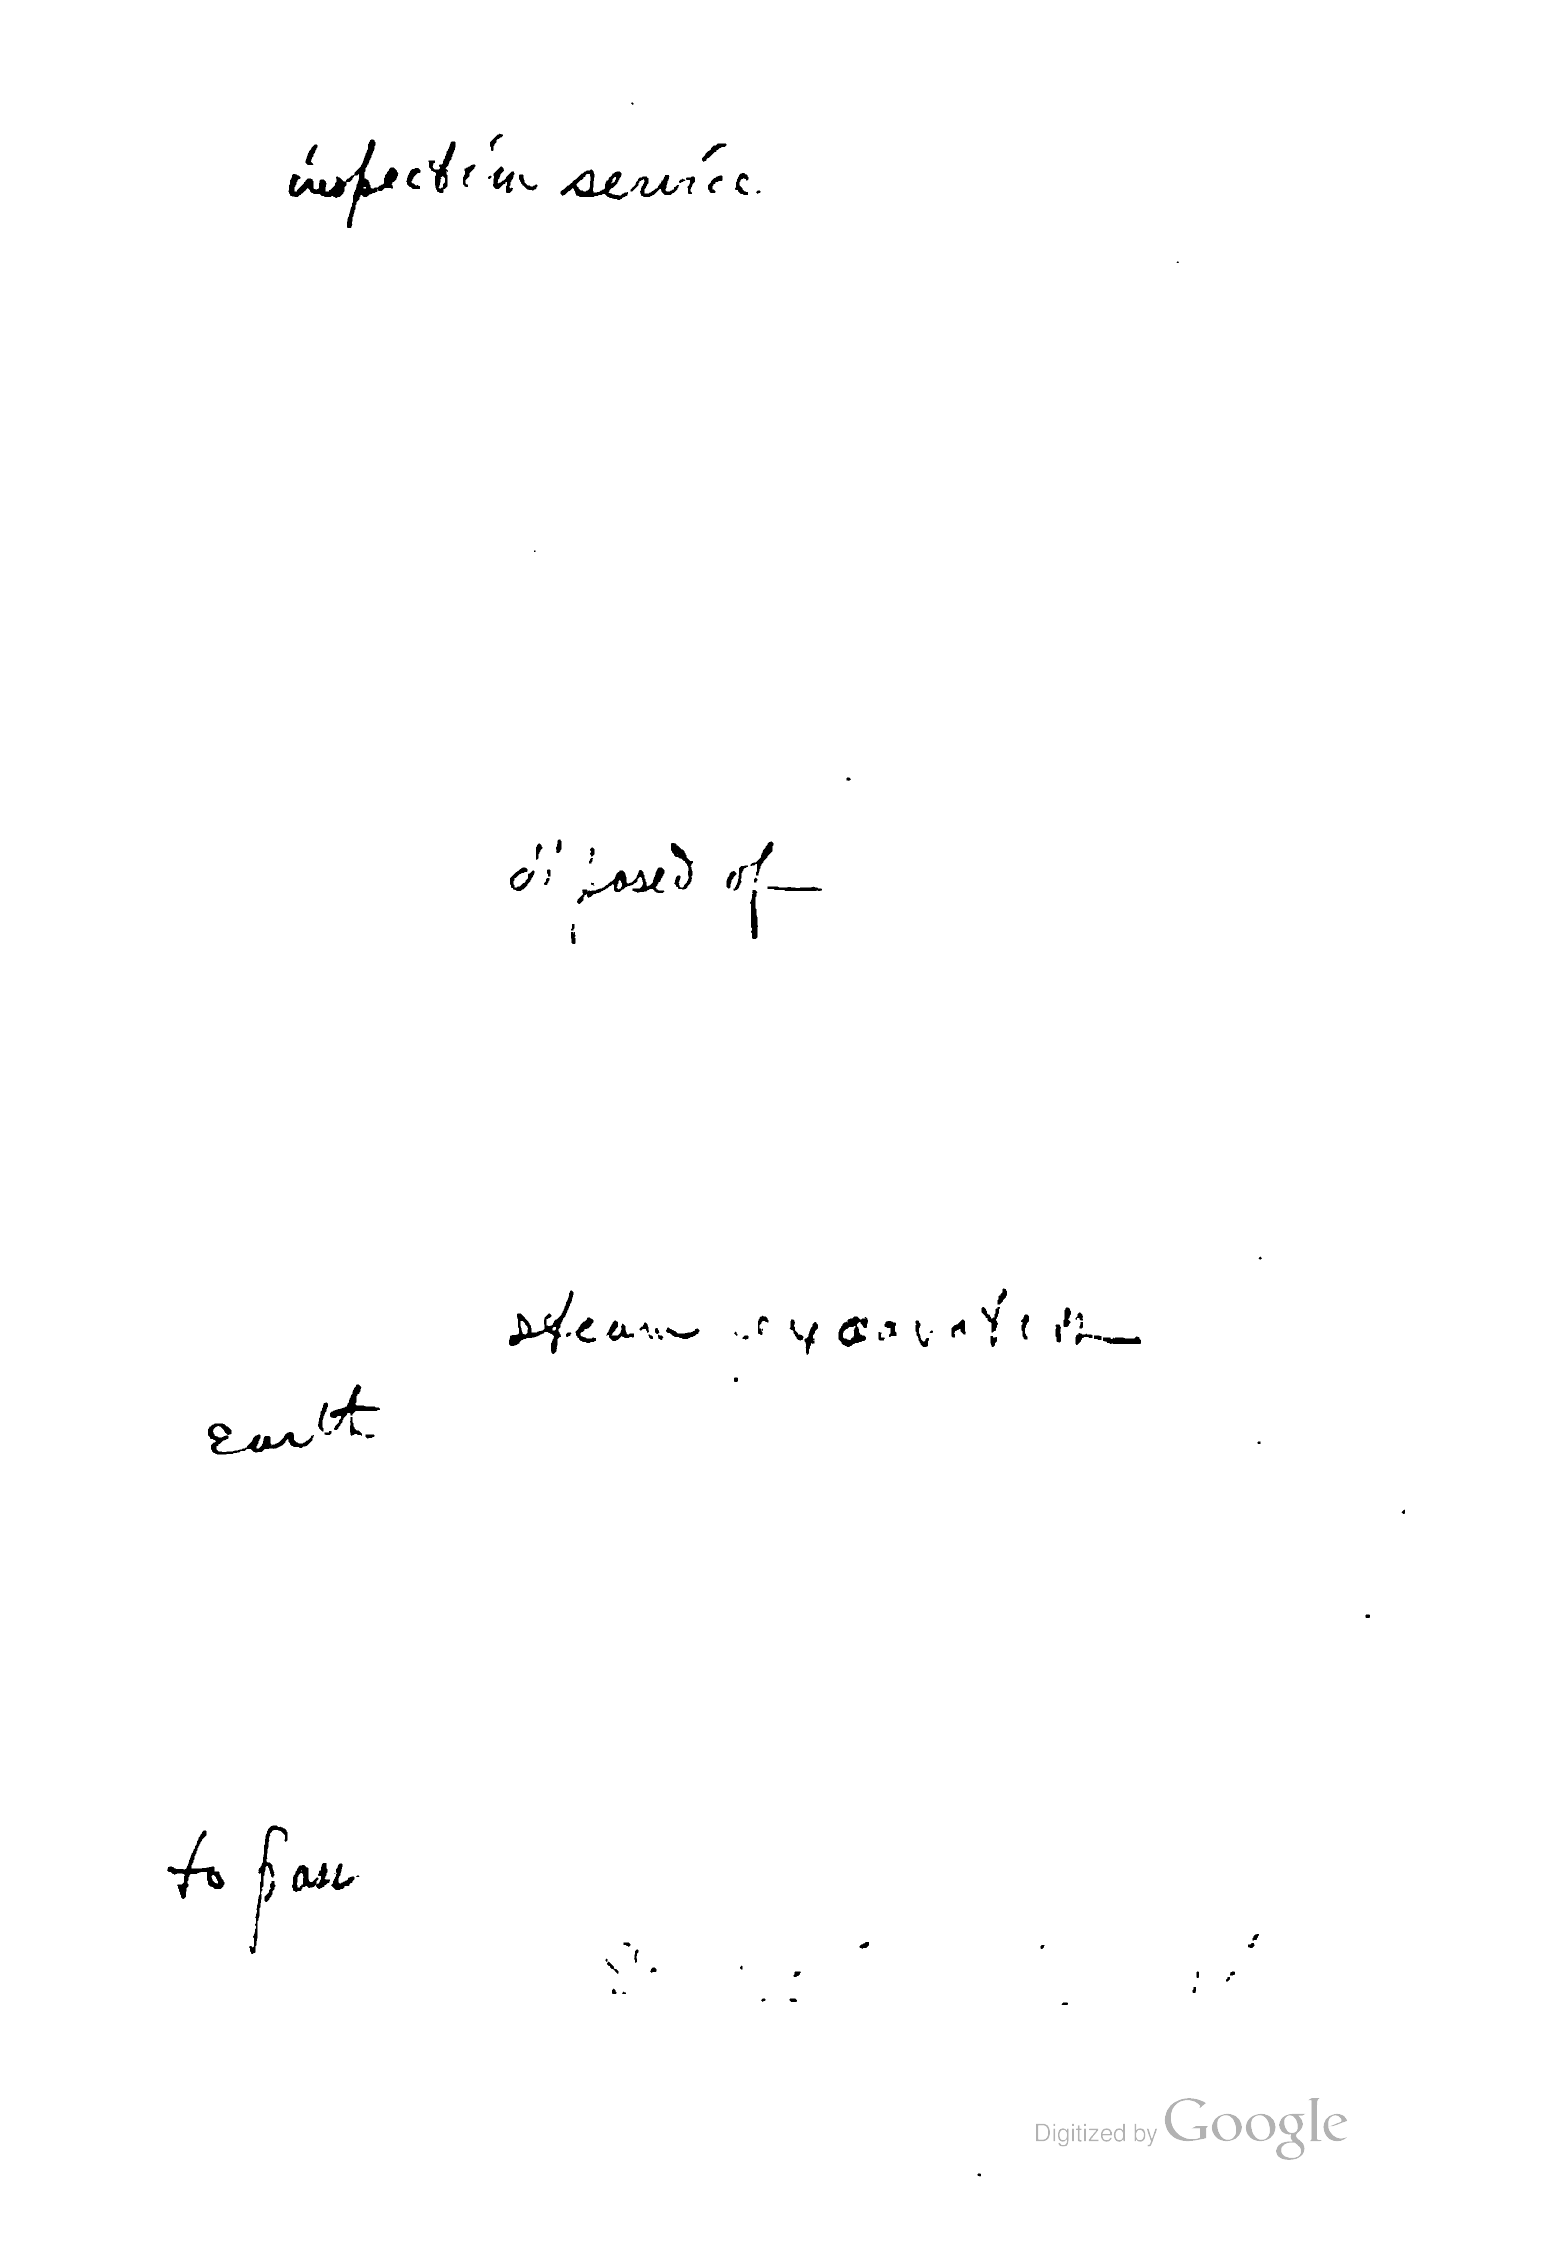 inspection service.
disposed of
steam excavation
Earth
to pass
Digitized by Google